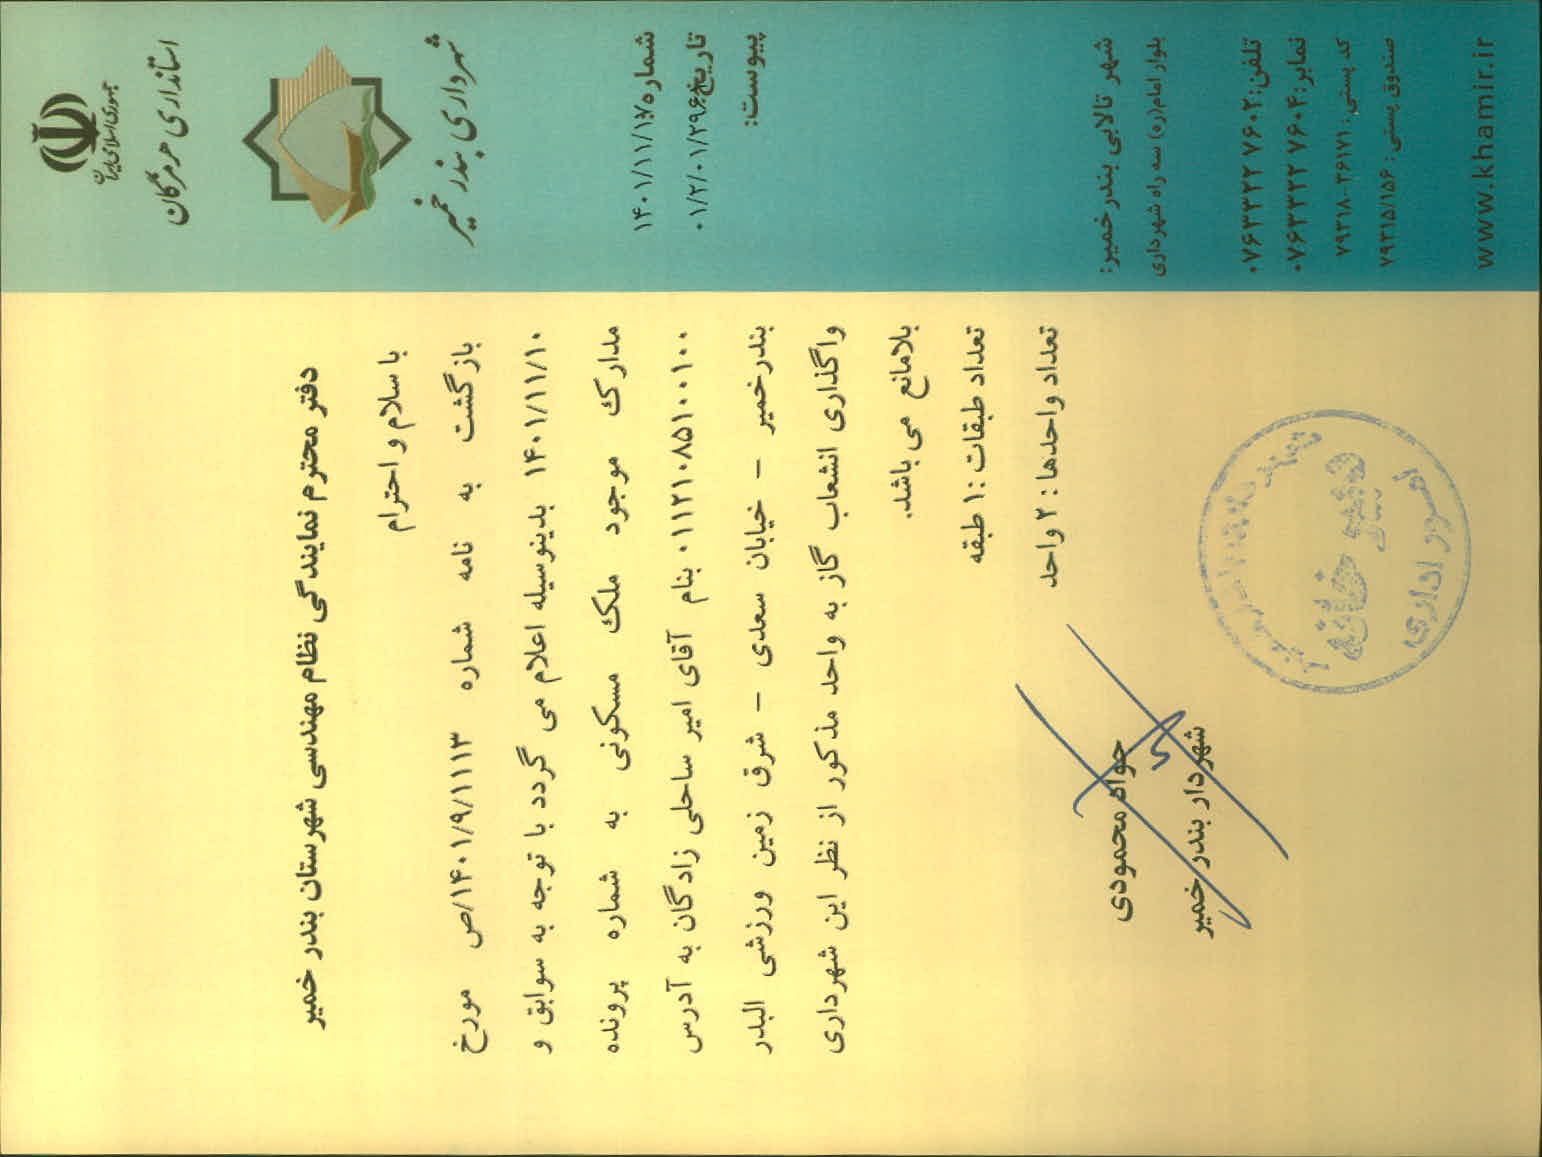 جمهوری اسلامی ایران
استانداری هرمزگان
شهرداری بندر خمیر
شماره:
۱۴۰۱/۱۱/۱۷
تاریخ:
پیوست:
شهر تالابی بندرخمیر:
بلوار امام(ره) سه راه شهرداری
تلفن: ۰۷۶۳۳۲۲ ۷۶۰۲
نمابر: ۰۷۶۳۳۲۲ ۷۶۰۴
کد پستی: ۷۹۳۱۸-۲۶۱۷۱
صندوق پستی: ۷۹۳۱۵/۱۵۶
www.khamir.ir
دفتر محترم نمایندگی نظام مهندسی شهرستان بندر خمیر
با سلام و احترام
بازگشت به نامه شماره ۱۴۰۱/۹/۱۱۱۳/ص مورخ
۱۴۰۱/۱۱/۱۰ بدینوسیله اعلام می گردد با توجه به سوابق و
مدارک موجود ملک مسکونی به شماره پرونده
۰۱۱۲۱۰۸۵۱۰۰۱۰۰ بنام آقای امیر ساحلی زادگان به آدرس
بندرخمیر – خیابان سعدی – شرق زمین ورزشی البدر
واگذاری انشعاب گاز به واحد مذکور از نظر این شهرداری
بلامانع می باشد.
تعداد طبقات: ۱ طبقه
تعداد واحدها: ۲ واحد
جواد محمودی
شهردار بندر خمیر
دبیر خانه
امور اداری